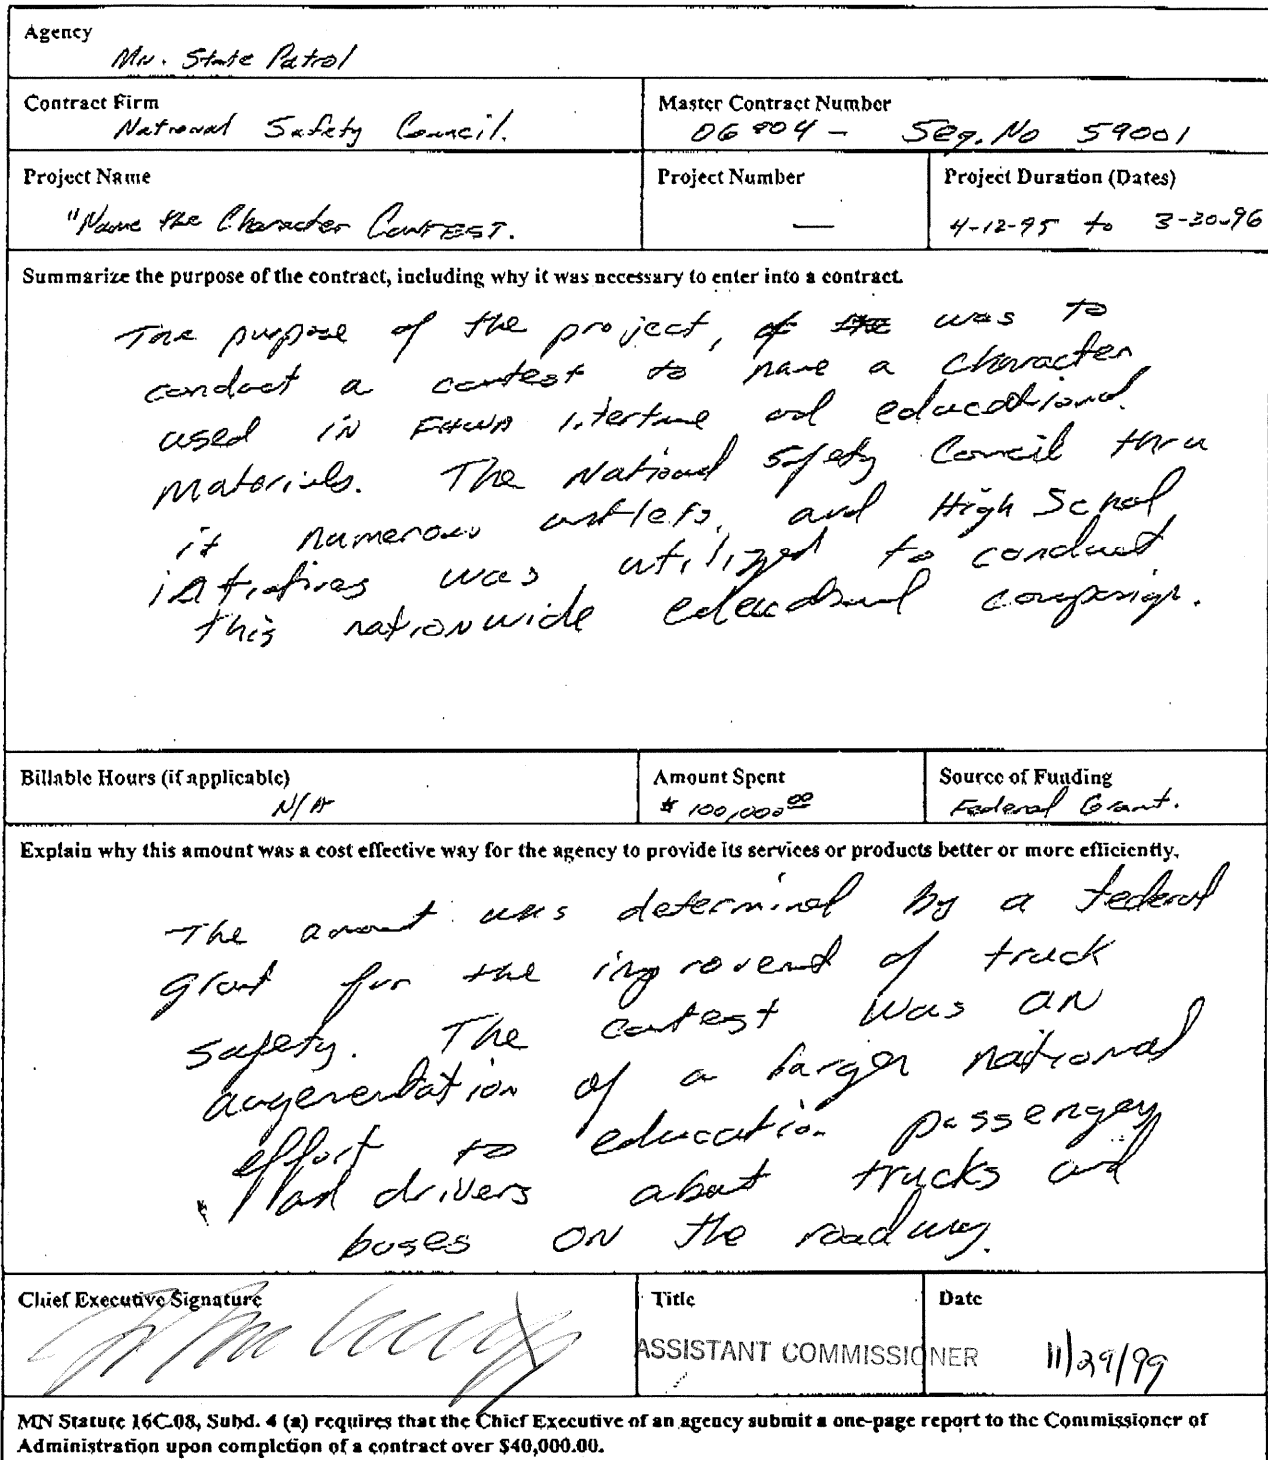 Agency
Mn. State Patrol
Contract Firm
National Safety Council.
Master Contract Number
06804 - Seq. No 59001
Project Name
"Name the Character Contest.
Project Number
—
Project Duration (Dates)
4-12-95 to 3-30-96
Summarize the purpose of the contract, including why it was necessary to enter into a contract.
The purpose of the project, was to
conduct a contest to name a character
used in FHWA literture and educational
materials. The National Safety Council thru
it numerous outlets, and High School
intiatives was utilized to conduct
this nationwide educational campaign.
Billable Hours (if applicable)
N/A
Amount Spent
$ 100,000.00
Source of Funding
Federal Grant.
Explain why this amount was a cost effective way for the agency to provide its services or products better or more efficiently.
The amount was determined by a federal
grant for the improvement of truck
safety. The contest was an
of a larger national
effort to education passenger
drivers about trucks and
buses on the roadway.
Chief Executive Signature
Title
ASSISTANT COMMISSIONER
Date
11/29/99
MN Statute 16C.08, Subd. 4 (a) requires that the Chief Executive of an agency submit a one-page report to the Commissioner of
Administration upon completion of a contract over $40,000.00.